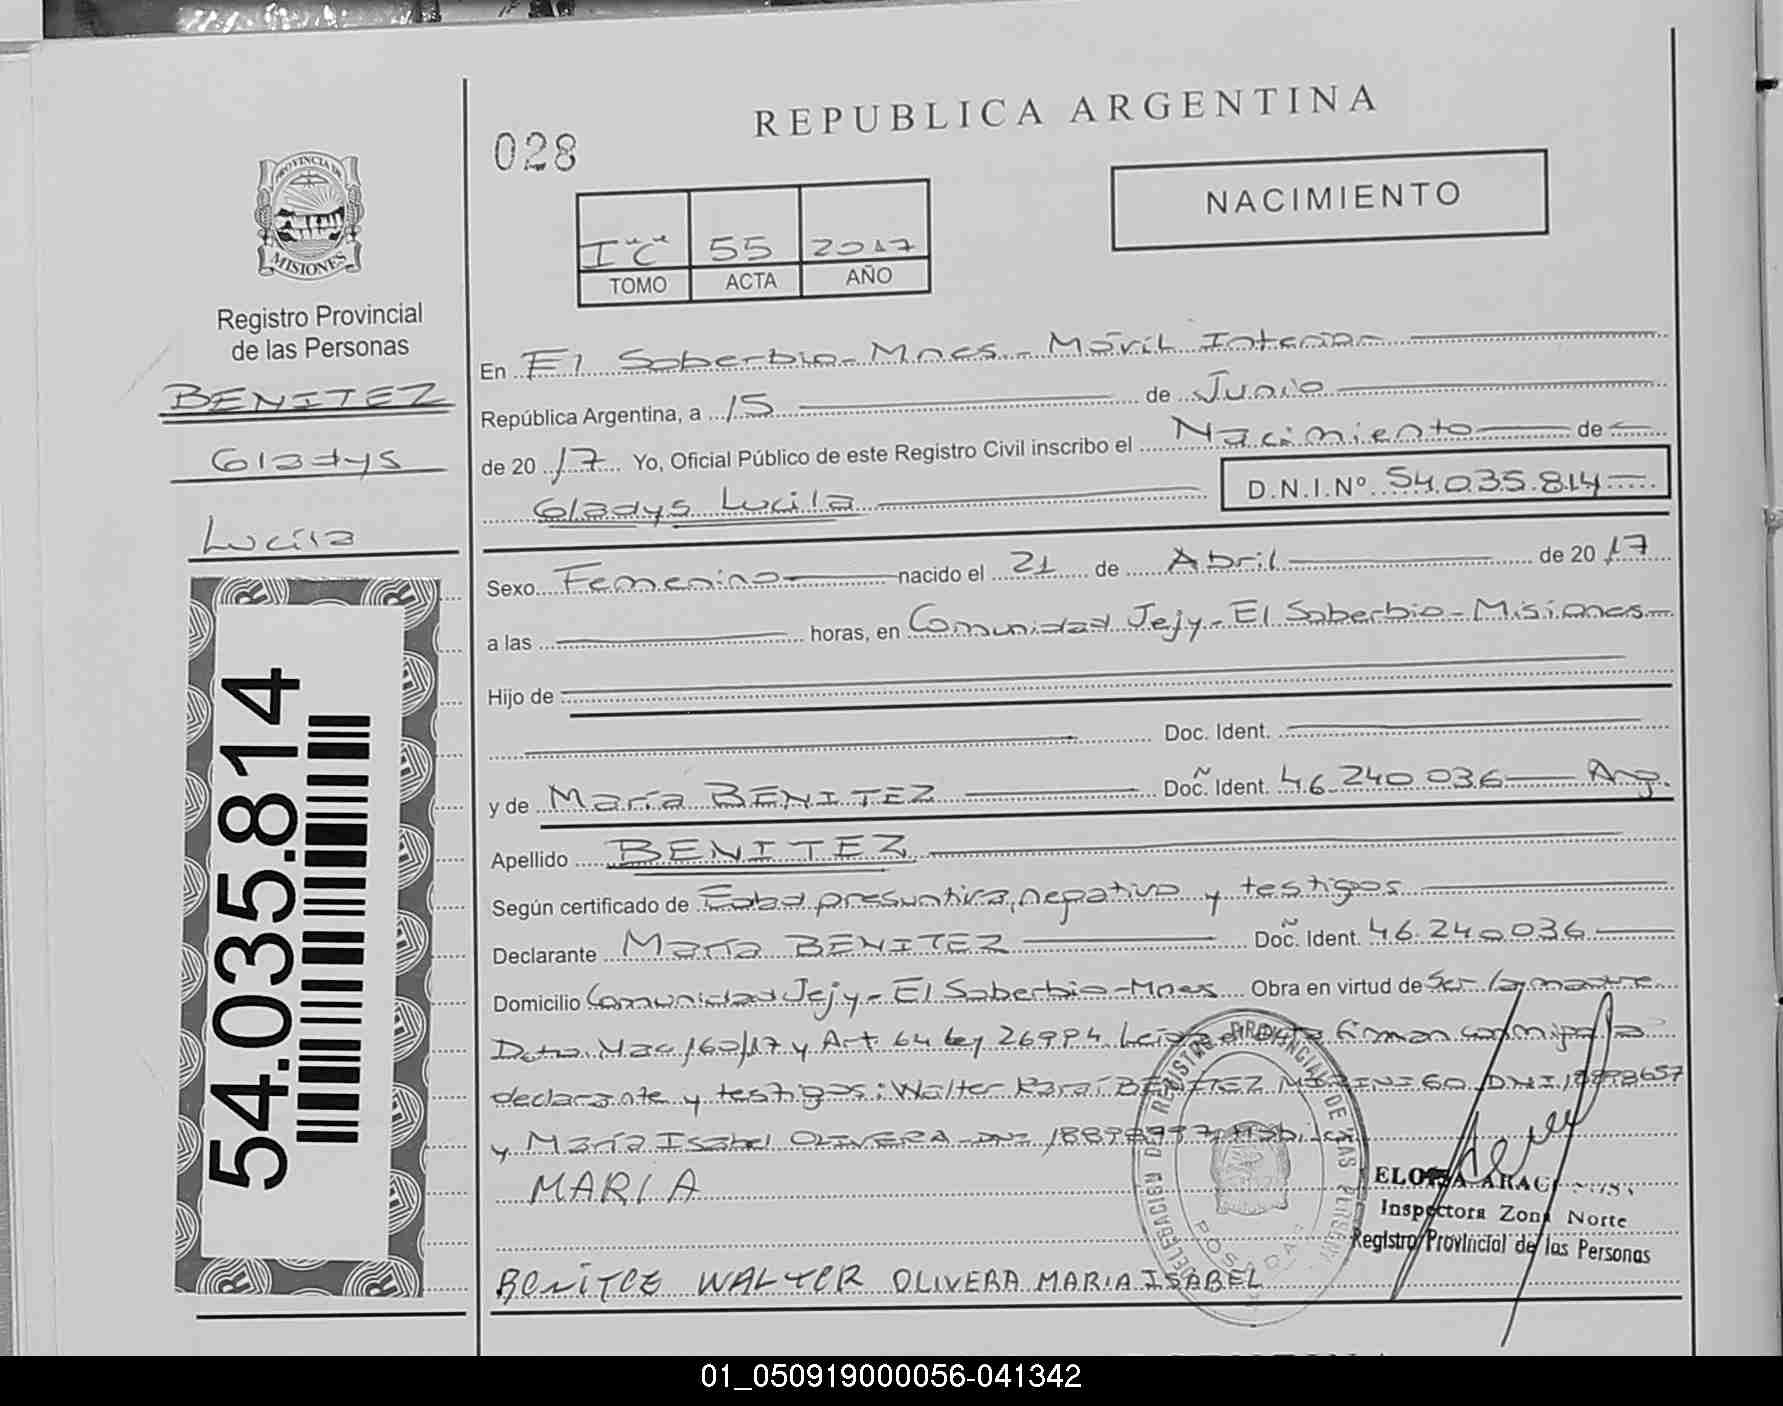 REPUBLICA ARGENTINA
028
NACIMIENTO
I"C" 55 2017
TOMO ACTA AÑO
PROVINCIA DE
MISIONES
Registro Provincial
de las Personas
BENITEZ
Gladys
Lucila
54.035.814
En El Soberbio - Mnes - Móvil Interior
República Argentina, a 15 de Junio
de 2017 Yo, Oficial Público de este Registro Civil inscribo el Nacimiento de
Gladys Lucila D.N.I.Nº 54.035.814
Sexo Femenino nacido el 21 de Abril de 2017
a las horas, en Comunidad Jejy - El Soberbio - Misiones
Hijo de
Doc. Ident.
y de María BENITEZ Doc. Ident. 46.240.036 Arg.
Apellido BENITEZ
Según certificado de Edad presuntiva, negativo y testigos
Declarante María BENITEZ Doc. Ident. 46.240.036
Domicilio Comunidad Jejy - El Soberbio - Mnes Obra en virtud de Ser la madre
Dcto. Nac/60/17 y Art. 64 Ley 26994 Leída el acta firman conmigo la
declarante y testigos: Walter BENITEZ DNI 18898657
y María Isabel OLIVERA DNI
MARIA
BENITEZ WALTER OLIVERA MARIA ISABEL
DELEGACION REGISTRO PROVINCIAL DE LAS PERSONAS
POSADAS
ELOISA
Inspectora Zona Norte
Registro Provincial de las Personas
01_050919000056-041342